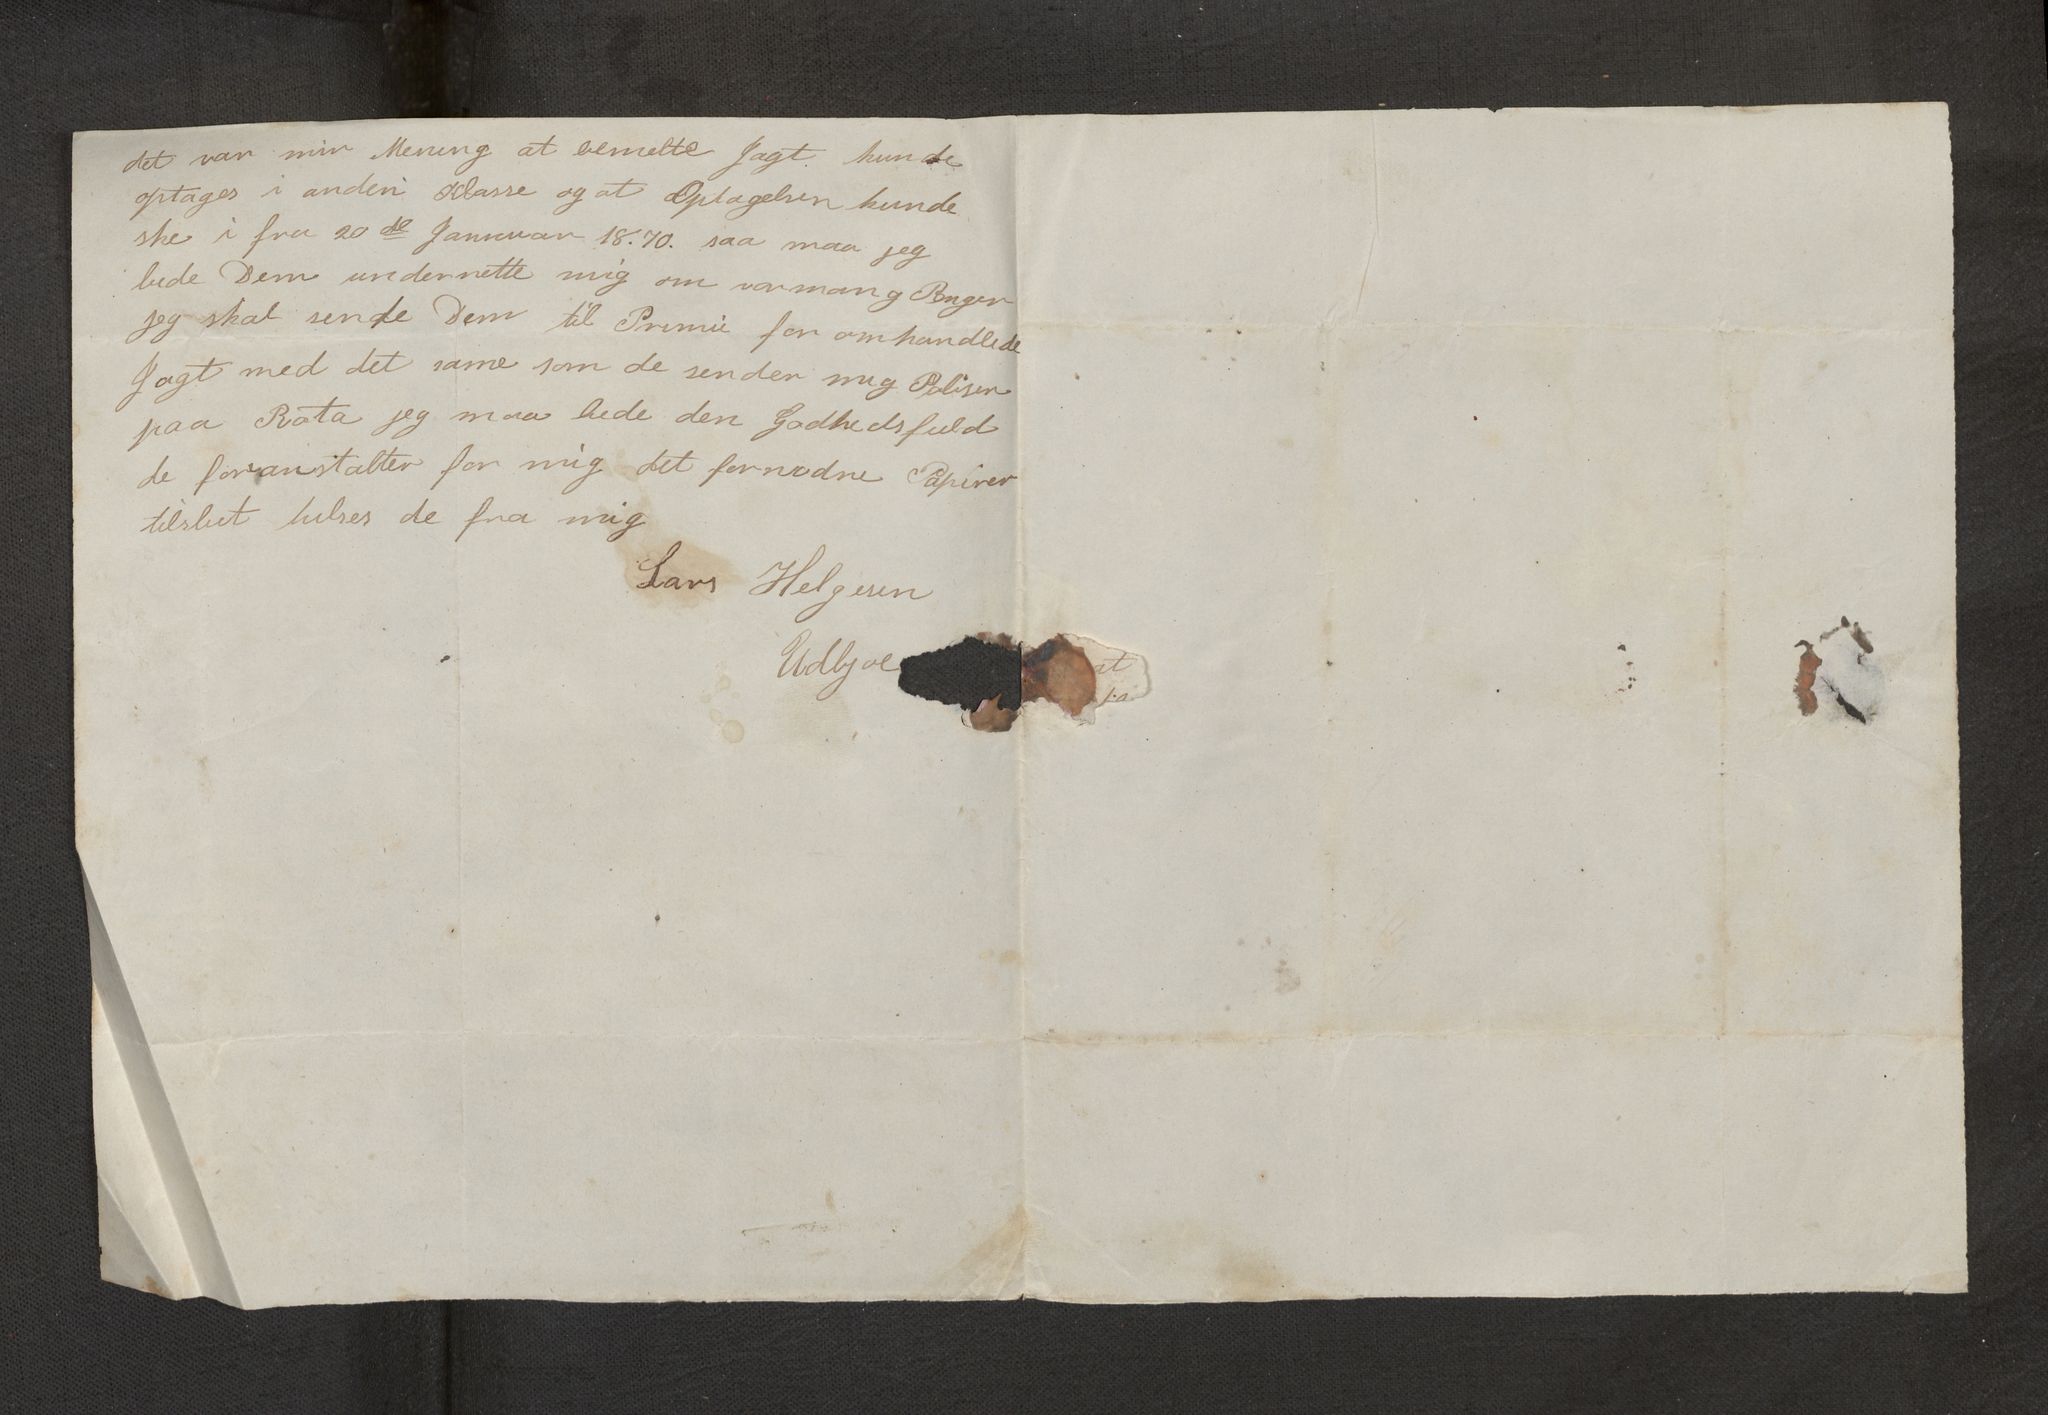 det var min Mening at bemelte Jagt kunde
optages i anden Klasse og at Optagelsen kunde
ske i fra 20de Januar 18.70. saa maa jeg
bede Dem undernette mig om vormang Penger
jeg skal sende Dem til Premie for omhandlede
Jagt med det same som de sender mig Polisen
paa Rota jeg maa bede den Godhedsfuld
de foranstalter for mig det fornødne Papirer
tilslut hilses de fra mig
Lars Helgesen
Udbjoe
at